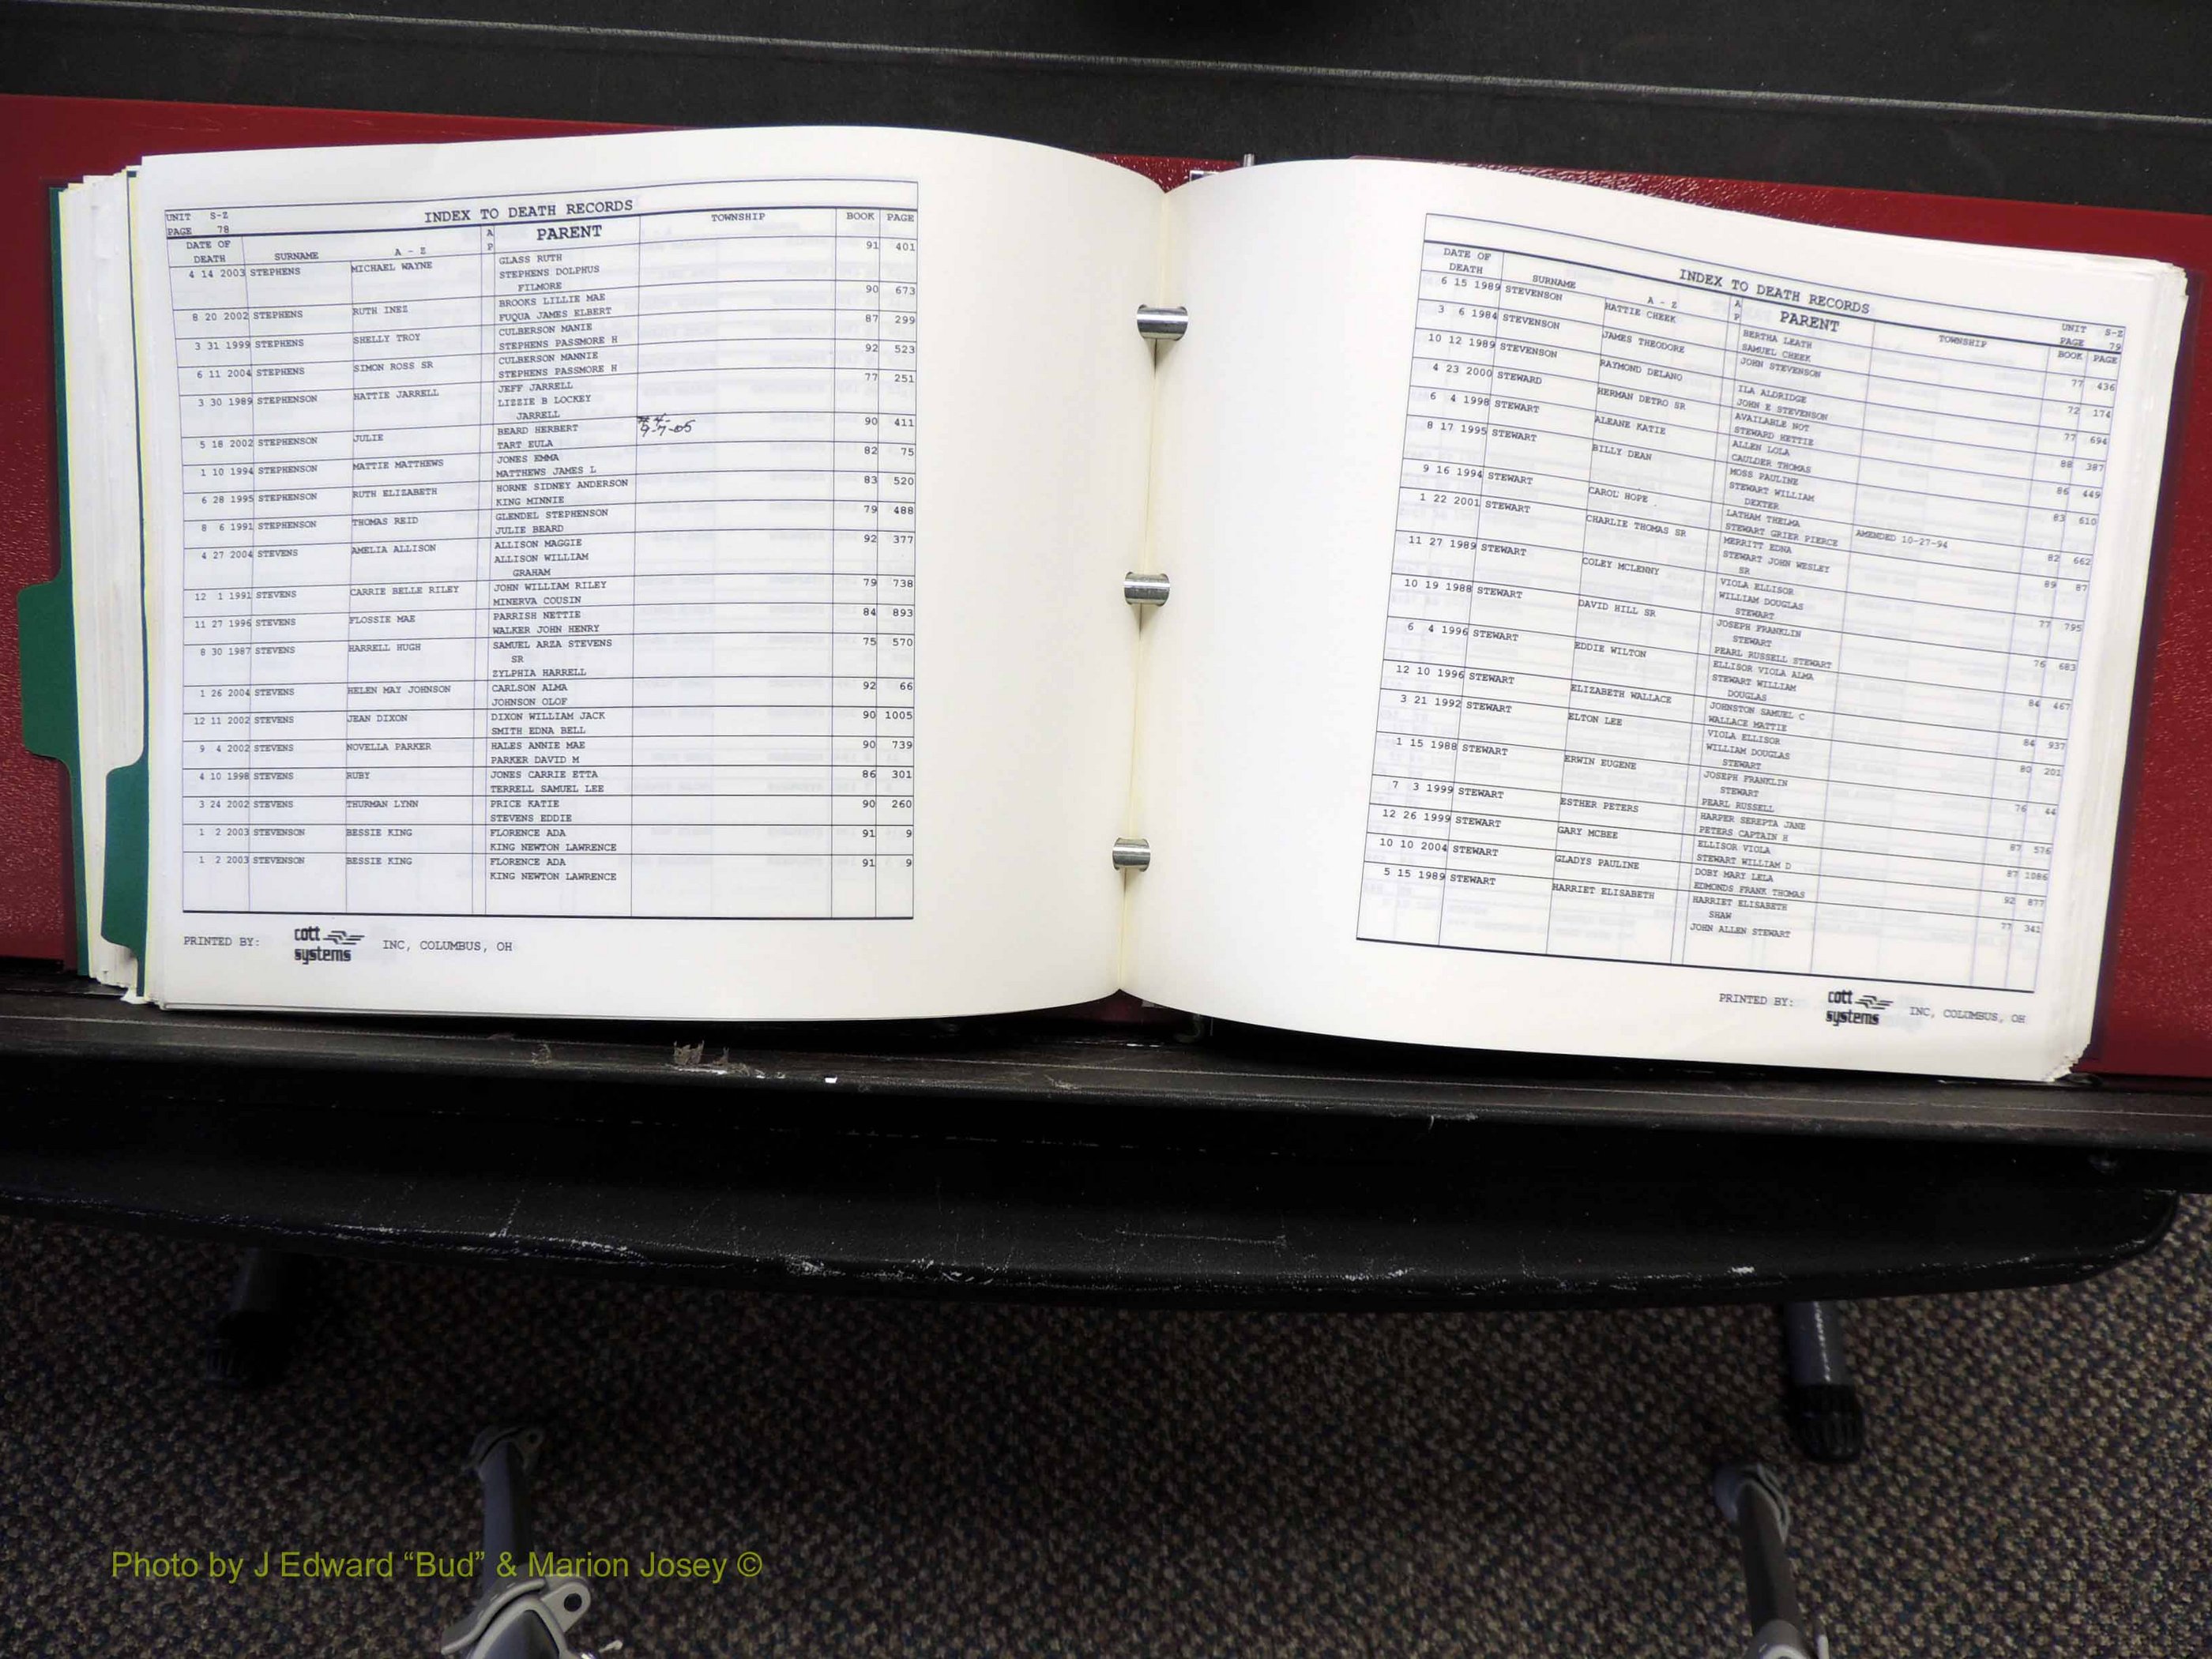 UNIT S-Z
PAGE 78
INDEX TO DEATH RECORDS
DATE OF DEATH SURNAME A - Z A P PARENT TOWNSHIP BOOK PAGE
4 14 2003 STEPHENS MICHAEL WAYNE GLASS RUTH 91 401
STEPHENS DOLPHUS
FILMORE
8 20 2002 STEPHENS RUTH INEZ BROOKS LILLIE MAE 90 673
FUQUA JAMES ELBERT
3 31 1999 STEPHENS SHELLY TROY CULBERSON MANIE 87 299
STEPHENS PASSMORE H
6 11 2004 STEPHENS SIMON ROSS SR CULBERSON MANNIE 92 523
STEPHENS PASSMORE H
3 30 1989 STEPHENSON HATTIE JARRELL JEFF JARRELL 77 251
LIZZIE B LOCKEY
JARRELL
5 18 2002 STEPHENSON JULIE BEARD HERBERT 9-7-05 90 411
TART EULA
1 10 1994 STEPHENSON MATTIE MATTHEWS JONES EMMA 82 75
MATTHEWS JAMES L
6 28 1995 STEPHENSON RUTH ELIZABETH HORNE SIDNEY ANDERSON 83 520
KING MINNIE
8 6 1991 STEPHENSON THOMAS REID GLENDEL STEPHENSON 79 488
JULIE BEARD
4 27 2004 STEVENS AMELIA ALLISON ALLISON MAGGIE 92 377
ALLISON WILLIAM
GRAHAM
12 1 1991 STEVENS CARRIE BELLE RILEY JOHN WILLIAM RILEY 79 738
MINERVA COUSIN
11 27 1996 STEVENS FLOSSIE MAE PARRISH NETTIE 84 893
WALKER JOHN HENRY
8 30 1987 STEVENS HARRELL HUGH SAMUEL ARZA STEVENS 75 570
SR
ZYLPHIA HARRELL
1 26 2004 STEVENS HELEN MAY JOHNSON CARLSON ALMA 92 66
JOHNSON OLOF
12 11 2002 STEVENS JEAN DIXON DIXON WILLIAM JACK 90 1005
SMITH EDNA BELL
9 4 2002 STEVENS NOVELLA PARKER HALES ANNIE MAE 90 739
PARKER DAVID M
4 10 1998 STEVENS RUBY JONES CARRIE ETTA 86 301
TERRELL SAMUEL LEE
3 24 2002 STEVENS THURMAN LYNN PRICE KATIE 90 260
STEVENS EDDIE
1 2 2003 STEVENSON BESSIE KING FLORENCE ADA 91 9
KING NEWTON LAWRENCE
1 2 2003 STEVENSON BESSIE KING FLORENCE ADA 91 9
KING NEWTON LAWRENCE
PRINTED BY: cott systems INC, COLUMBUS, OH
INDEX TO DEATH RECORDS
UNIT S-Z
PAGE 79
DATE OF DEATH SURNAME A - Z A P PARENT TOWNSHIP BOOK PAGE
6 15 1989 STEVENSON HATTIE CHEEK BERTHA LEATH 77 436
SAMUEL CHEEK
3 6 1984 STEVENSON JAMES THEODORE JOHN STEVENSON 72 174
10 12 1989 STEVENSON RAYMOND DELANO ILA ALDRIDGE 77 694
JOHN E STEVENSON
4 23 2000 STEWARD HERMAN DETRO SR AVAILABLE NOT 88 387
STEWARD HETTIE
6 4 1998 STEWART ALEANE KATIE ALLEN LOLA 86 449
CAULDER THOMAS
8 17 1995 STEWART BILLY DEAN MOSS PAULINE 83 610
STEWART WILLIAM
DEXTER
9 16 1994 STEWART CAROL HOPE LATHAM THELMA AMENDED 10-27-94 82 662
STEWART GRIER PIERCE
1 22 2001 STEWART CHARLIE THOMAS SR MERRITT EDNA 89 87
STEWART JOHN WESLEY
SR
11 27 1989 STEWART COLEY MCLENNY VIOLA ELLISOR 77 795
WILLIAM DOUGLAS
STEWART
10 19 1988 STEWART DAVID HILL SR JOSEPH FRANKLIN 76 683
STEWART
PEARL RUSSELL STEWART
6 4 1996 STEWART EDDIE WILTON ELLISOR VIOLA ALMA 84 467
STEWART WILLIAM
DOUGLAS
12 10 1996 STEWART ELIZABETH WALLACE JOHNSTON SAMUEL C 84 937
WALLACE MATTIE
3 21 1992 STEWART ELTON LEE VIOLA ELLISOR 80 201
WILLIAM DOUGLAS
STEWART
1 15 1988 STEWART ERWIN EUGENE JOSEPH FRANKLIN 76 44
STEWART
PEARL RUSSELL
7 3 1999 STEWART ESTHER PETERS HARPER SEREPTA JANE 87 576
PETERS CAPTAIN H
12 26 1999 STEWART GARY MCBEE ELLISOR VIOLA 87 1086
STEWART WILLIAM D
10 10 2004 STEWART GLADYS PAULINE DOBY MARY LELA 92 877
EDMONDS FRANK THOMAS
5 15 1989 STEWART HARRIET ELISABETH HARRIET ELISABETH 77 341
SHAW
JOHN ALLEN STEWART
PRINTED BY: cott systems INC, COLUMBUS, OH
Photo by J Edward “Bud” & Marion Josey ©